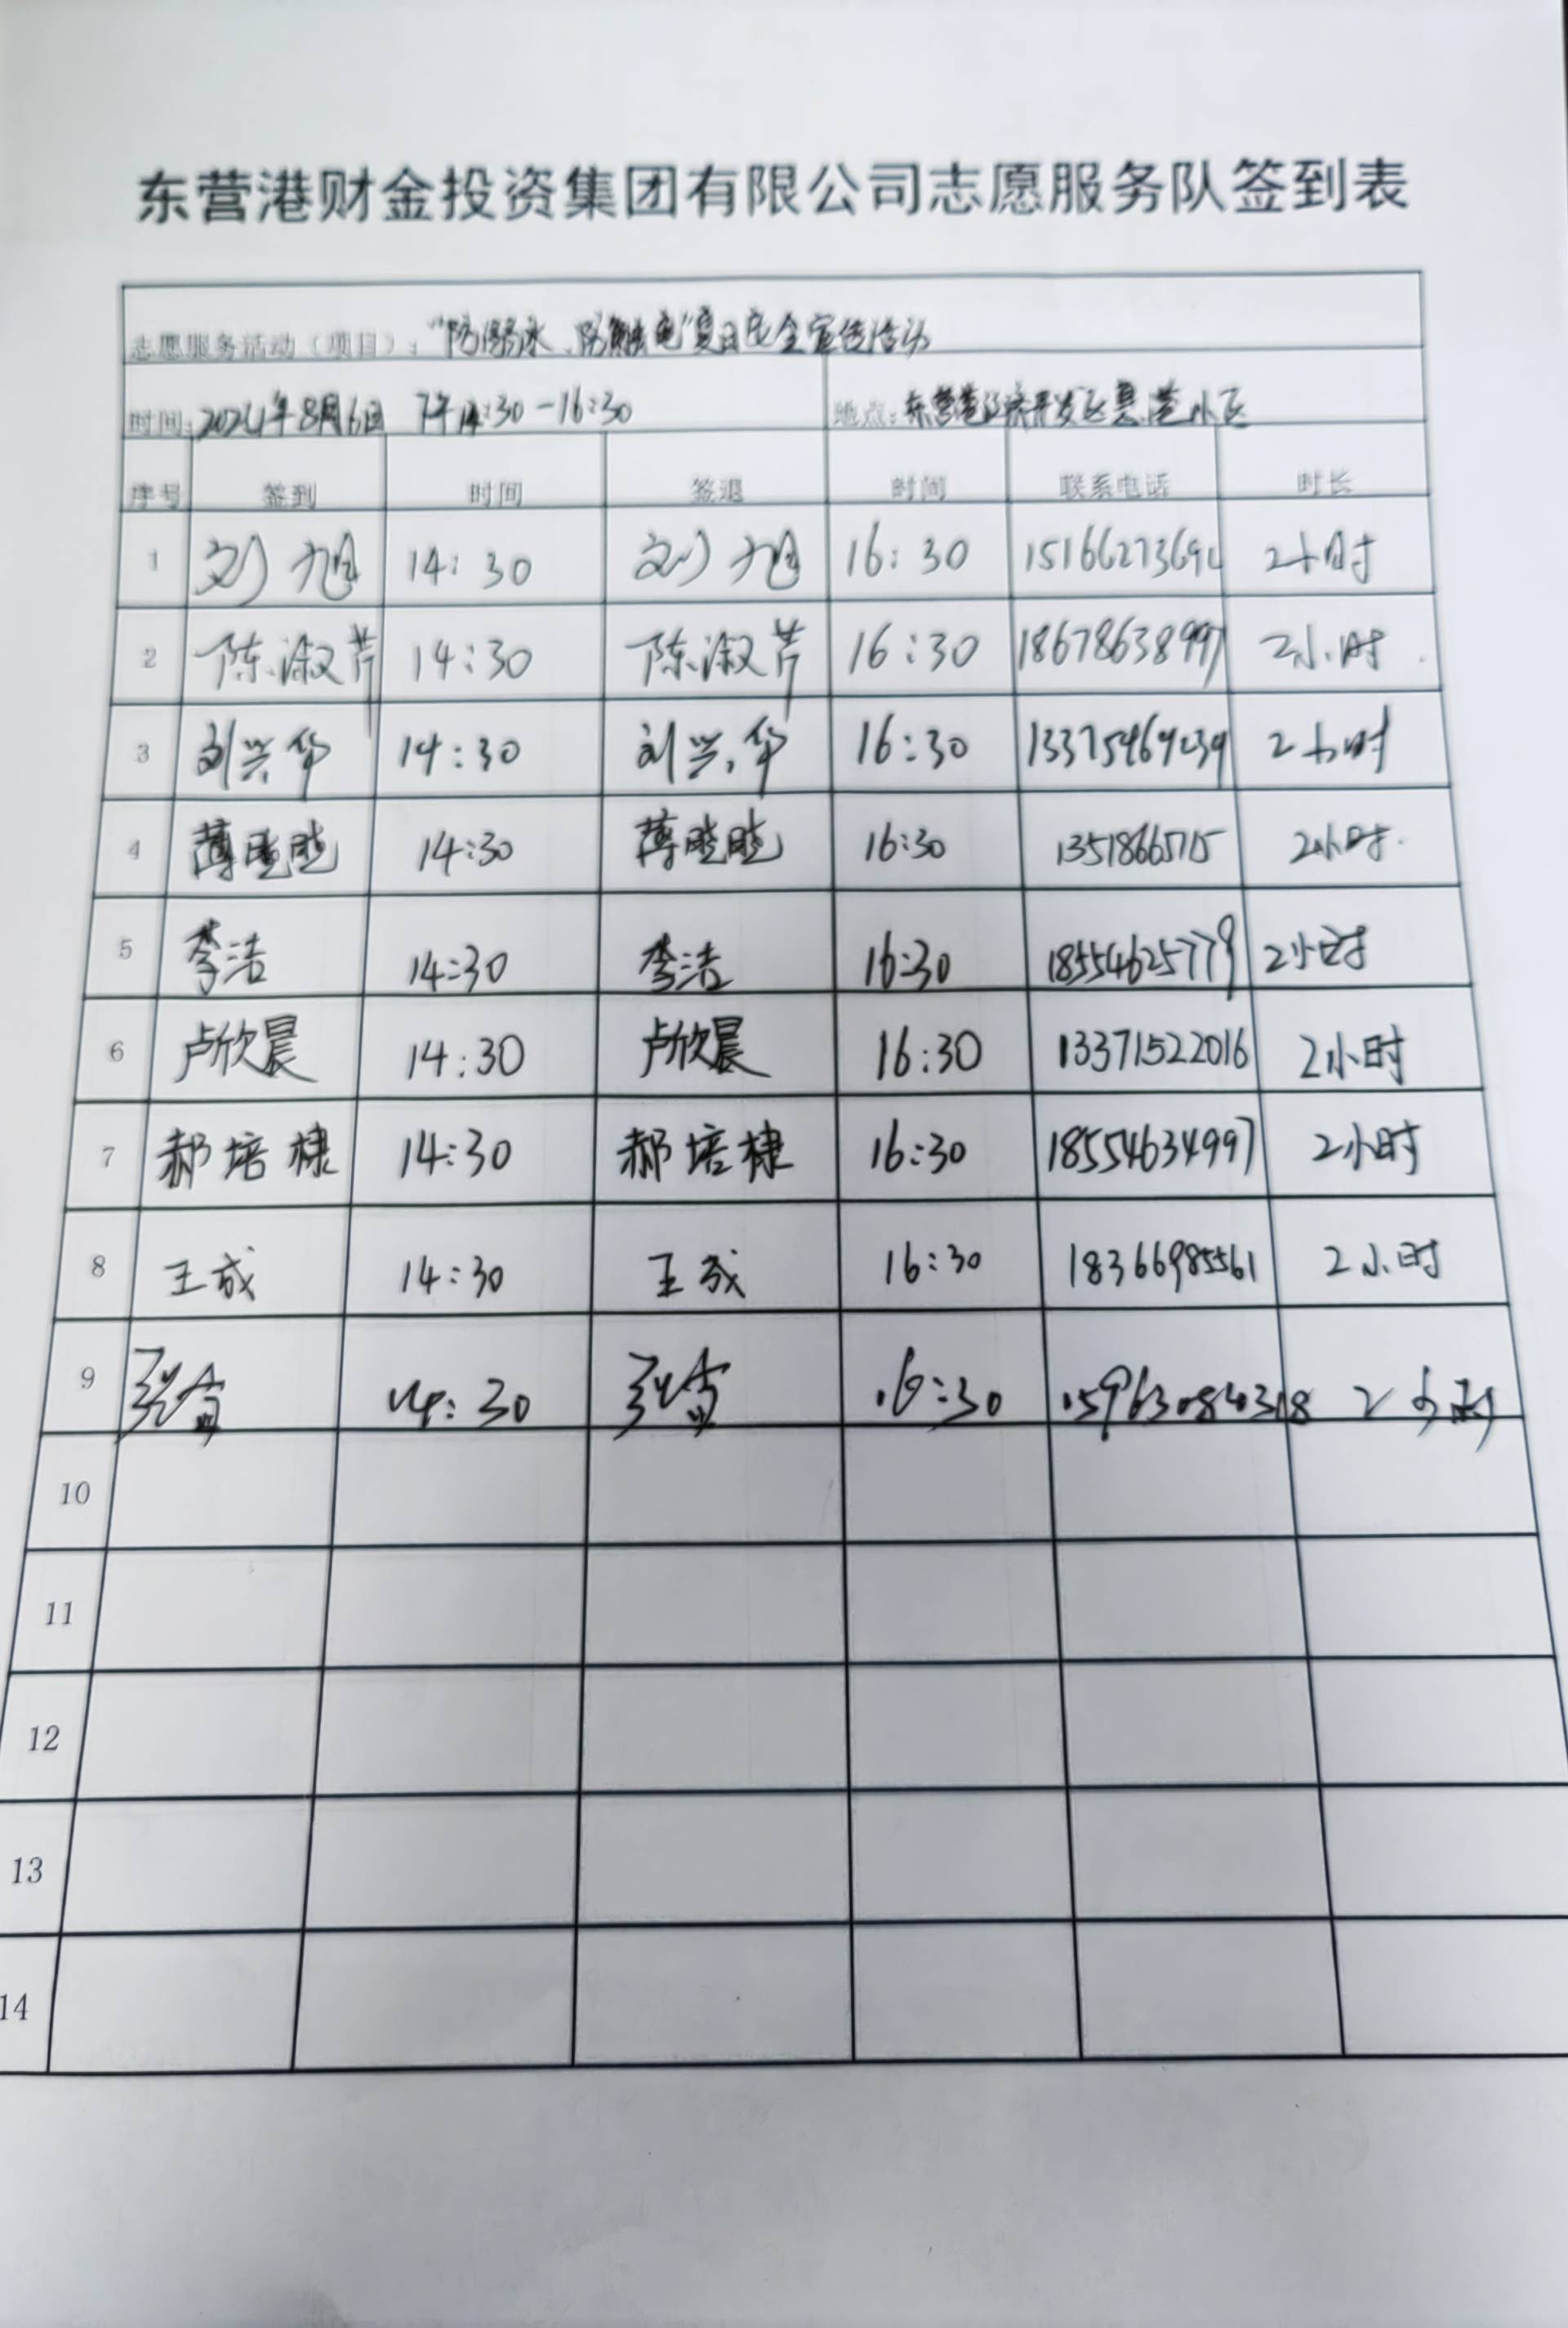 东营港财金投资集团有限公司志愿服务队签到表
志愿服务活动（项目）："防溺水、防触电"夏日安全宣传活动
时间：2024年8月6日 下午14:30-16:30 地点：东营港经济开发区 港小区
序号 签到 时间 签退 时间 联系电话 时长
1 刘旭 14:30 刘旭 16:30 2小时
2 陈淑芹 14:30 陈淑芹 16:30 18678638997 2小时
3 刘兴华 14:30 刘兴华 16:30 2小时
4 薄晓晓 14:30 薄晓晓 16:30 2小时
5 李洁 14:30 李洁 16:30 18554625779 2小时
6 卢欣晨 14:30 卢欣晨 16:30 13371522016 2小时
7 郝培棣 14:30 郝培棣 16:30 18554634997 2小时
8 王成 14:30 王成 16:30 18366985561 2小时
9 张雪 14:30 张雪 16:30 2小时
10
11
12
13
14